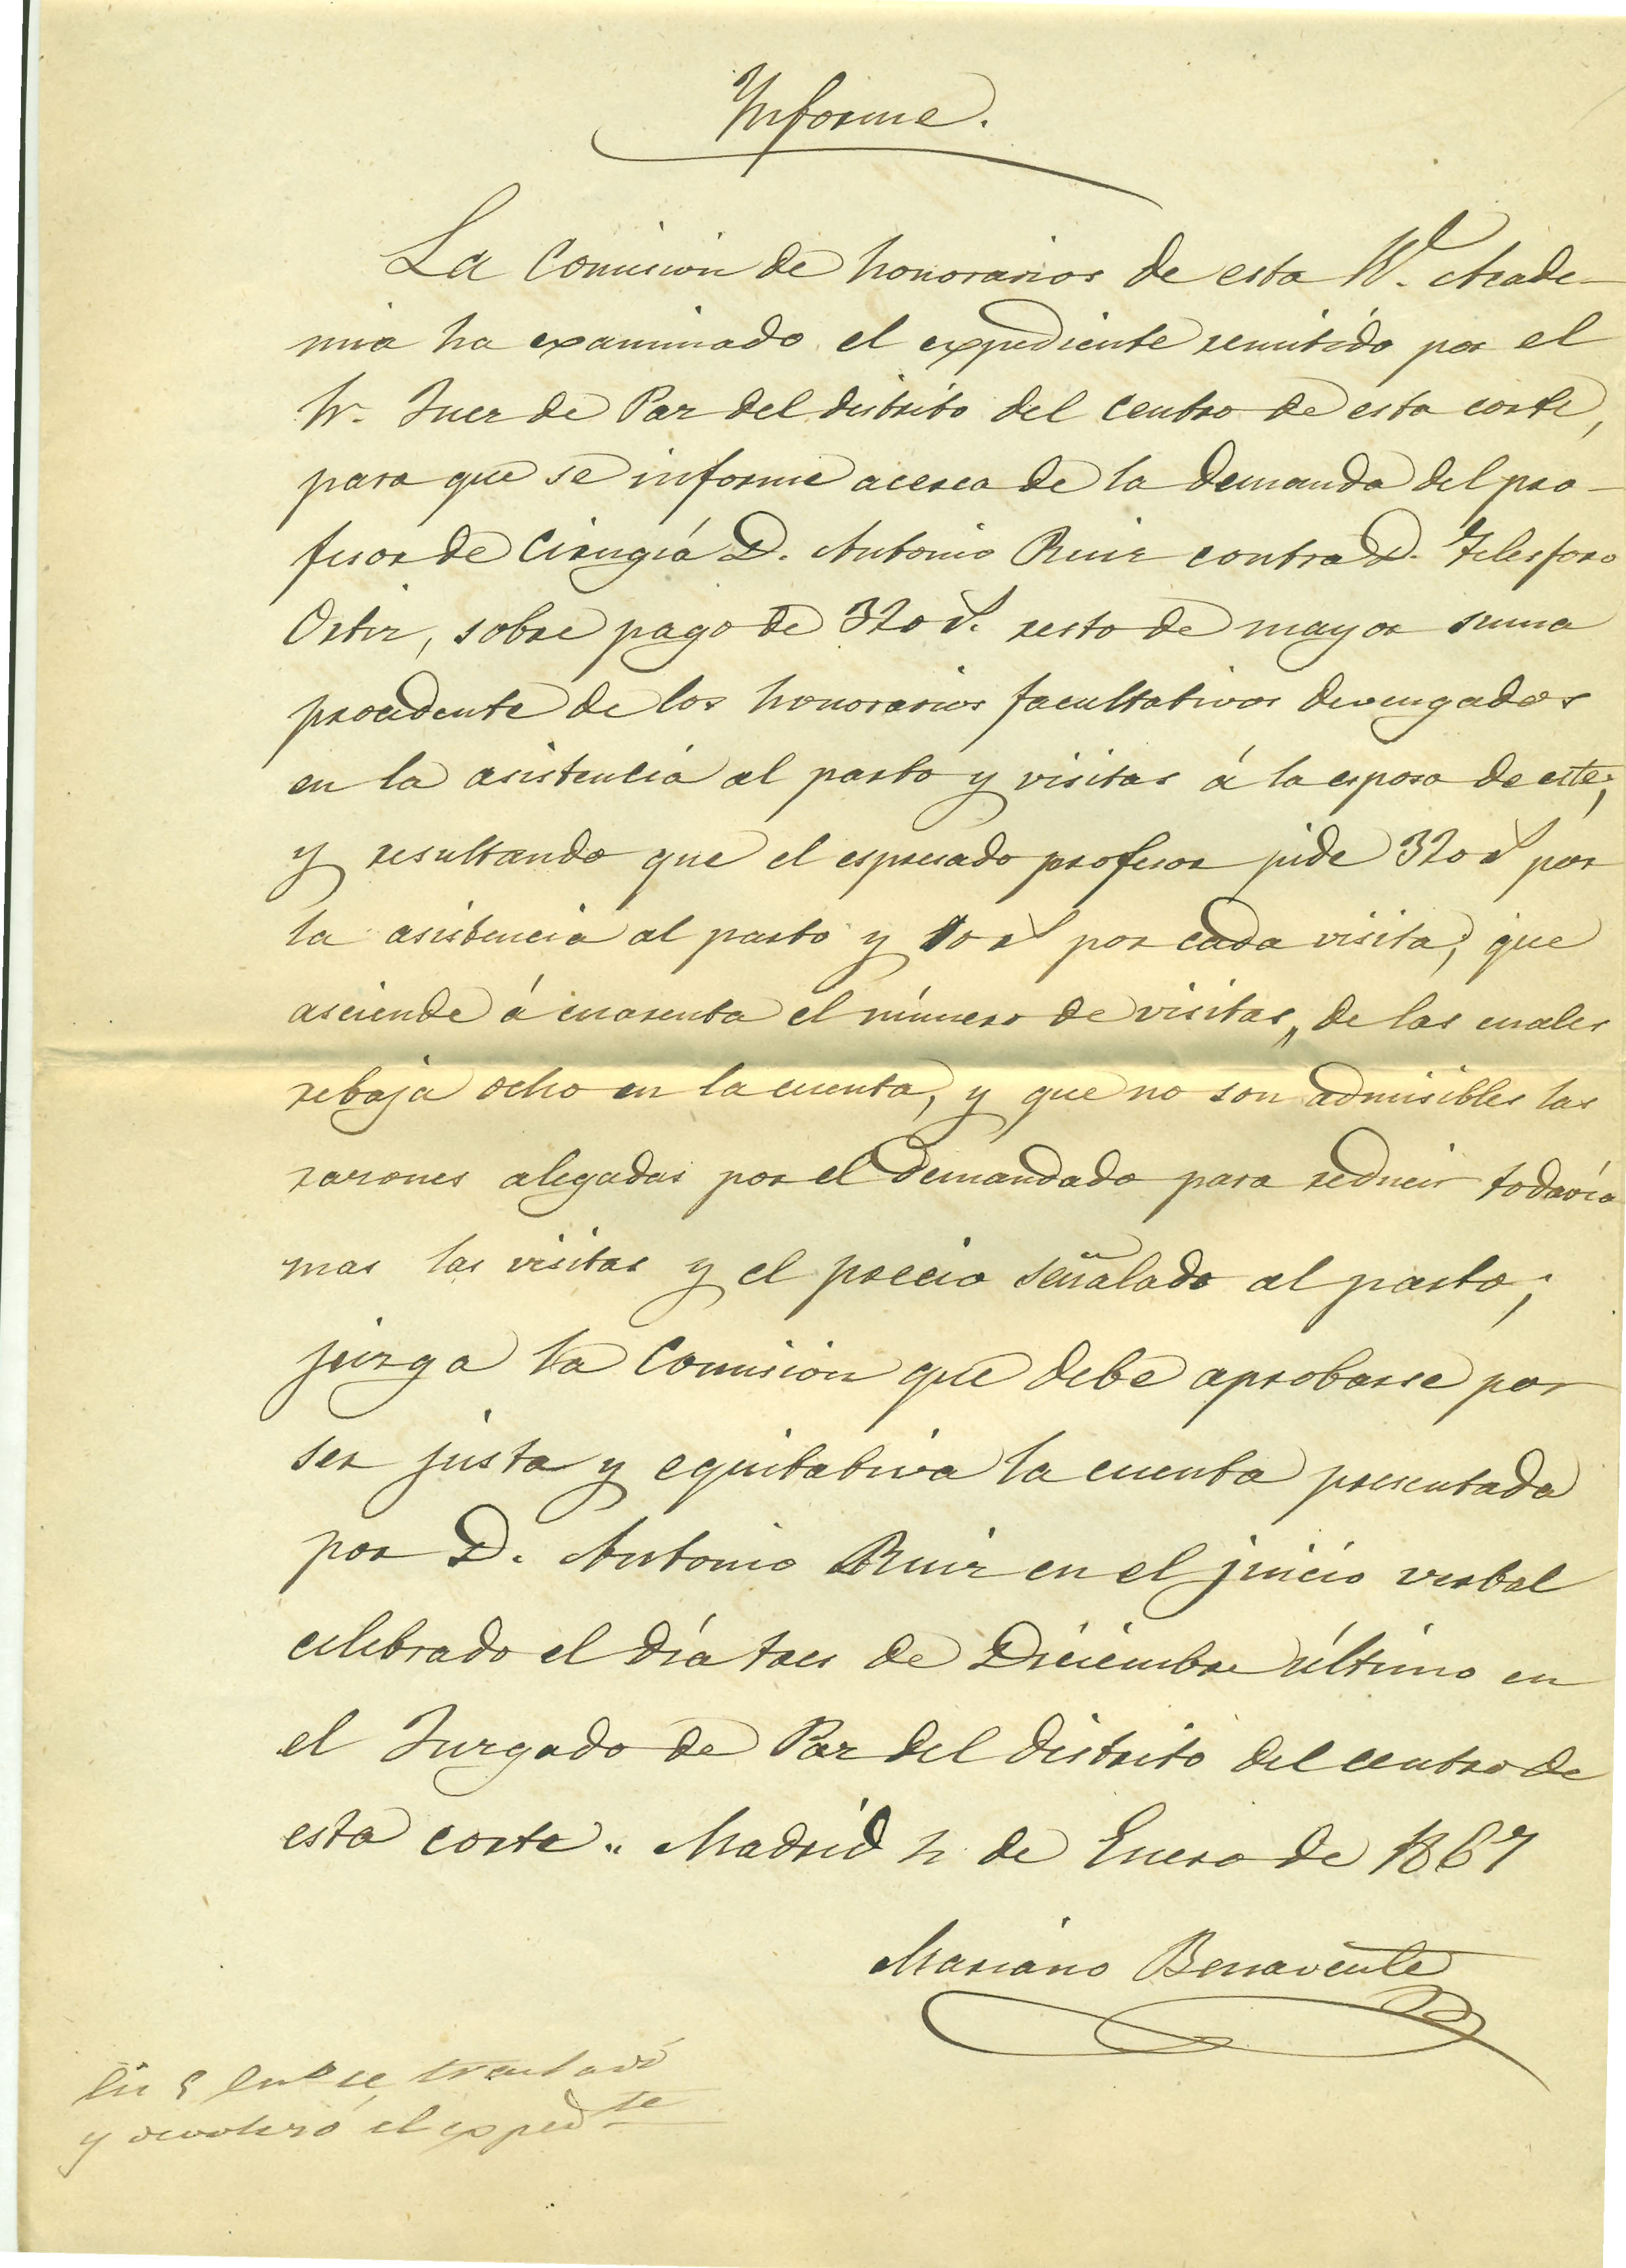 Informe.
La Comision de honorarios de esta Rl. Acade-
mia ha examinado el expediente remitido por el
Sr. Juez de Paz del distrito del centro de esta corte,
para que se informe acerca de la demanda del pro-
fesor de Cirugía D. Antonio Ruiz contra D. Telesforo
Ortiz, sobre pago de 320 rl. resto de mayor suma
procedente de los honorarios facultativos devengados
en la asistencia al parto y visitas á la esposa de este;
y resultando que el espresado profesor pide 320 rl por
la asistencia al parto y 10 rl por cada visita; que
asciende á cuarenta el número de visitas, de las cuales
rebaja ocho en la cuenta, y que no son admisibles las
razones alegadas por el demandado para reducir todavía
mas las visitas y el precio señalado al parto;
juzga la Comision que debe aprobarse por
ser justa y equitativa la cuenta presentada
por D. Antonio Ruiz en el juicio verbal
celebrado el día tres de Diciembre último en
el Juzgado de Paz del distrito del centro de
esta corte. Madrid de Enero de 1867
Mariano Benavente
En 5 Enº se trasladó
y devolvió el expedte